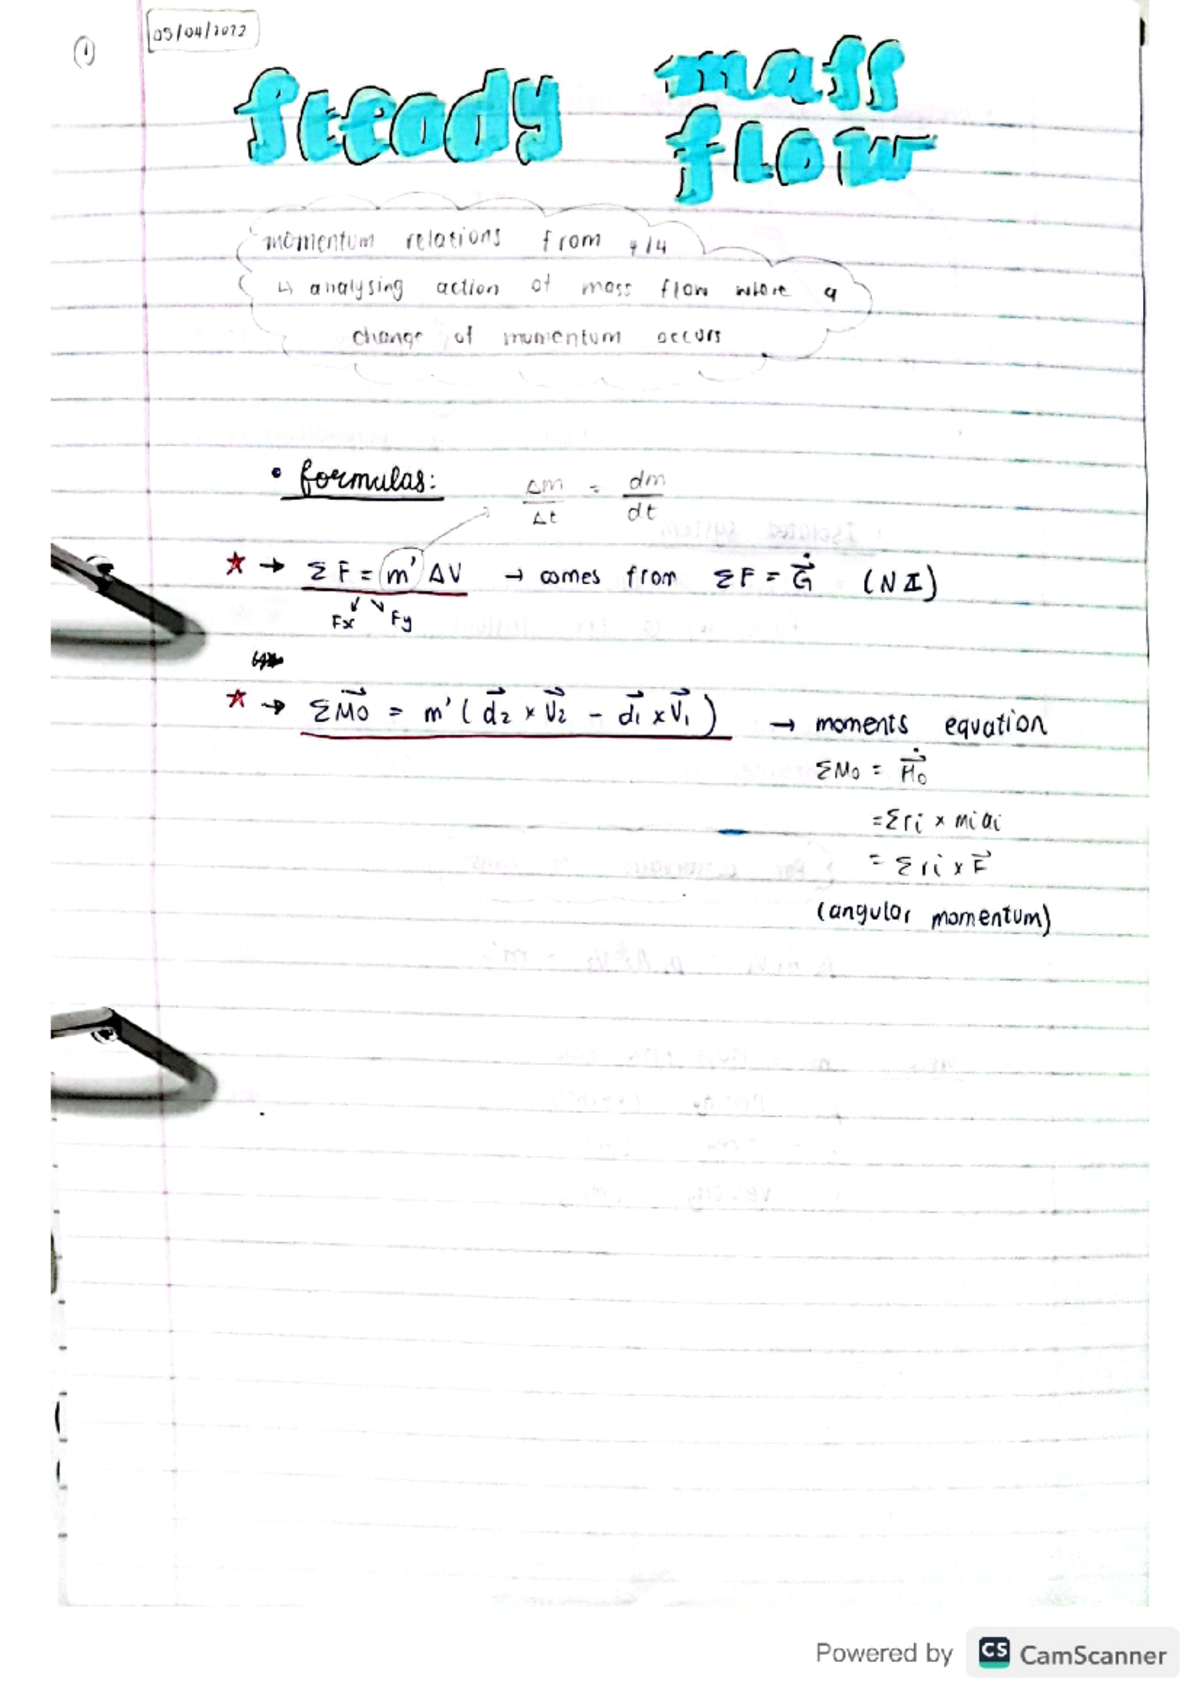 ①
05/04/2022
Steady mass flow
momentum relations from 4/4
↳ analysing action of mass flow where a
change of momentum occurs
• formulas:
Δm/Δt = dm/dt
★ → ΣF = m' ΔV → comes from ΣF = G⃗̇ (NII)
Fx Fy
★ → ΣM⃗o = m' ( d⃗2 × V⃗2 - d⃗1 × V⃗1 ) → moments equation
ΣMo = H⃗̇o
= Σri × miai
= Σri × F⃗
(angular momentum)
Powered by CS CamScanner